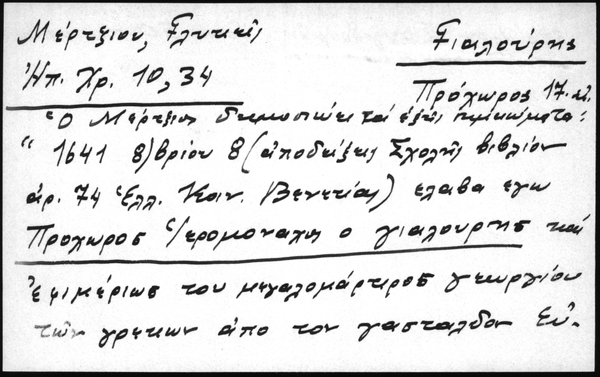 Μέρτζιου, Γλυκκῆς
Γιαλούρης
Ἠπ. Χρ. 10, 34
Πρόχωρος 17. αἰ.
Ὁ Μέρτζιος δημοσιεύει τά ἑξῆς σημειώματα:
“ 1641 8)βρίου 8 (ἀποδείξεις Σχολῆς βιβλίον
ἀρ. 74 Ἑλλ. Κοιν. Βενετίας) ελαβα εγω
Προχωρος Ἱερομοναχος ο γιαλουρης καί
Ἐφιμέριος του μεγαλομάρτυρος γεωργίου
τῶν γρεκων ἀπο τον γασταλδον Εὐ-